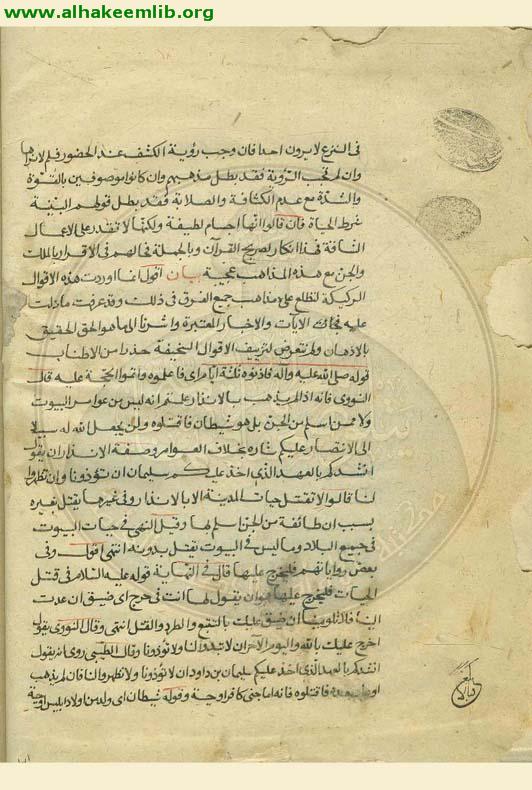 www.alhakeemlib.org
فى النزع لا يرون احدا فان وجب رؤية الكثيف عند الحضور فلم لا نراها
وان لم تجب الرؤية فقد بطل مذهبهم وان كانوا موصوفين بالقوة
والشدة مع عدم الكثافة والصلابة فقد بطل قولهم البنية
شرط الحياة فان قالوا انها اجسام لطيفة ولكنها لا تقدر على الاعمال
الشاقة فهذا انكار لصريح القرآن وبالجملة فحالهم فى الاقرار بالملك
والجن مع هذه المذاهب عجيبة بيان اقول انما اوردت هذه الاقوال
الركيكة لتطلع على مذاهب جميع الفرق فى ذلك وقد عرفت ما دلت
عليه الآيات والاخبار المعتبرة واشرنا الى ما هو الحق الحقيق
بالاذهان ولم نتعرض لتزييف الاقوال السخيفة حذرا من الاطناب
قوله صلى الله عليه وآله فاذنوه ثلثة ايام اى فاعلموه واتموا الحجة عليه قال
النووى فانه اذا لم يذهب بالانذار علمتم انه ليس من عوامر البيوت
ولا ممن اسلم من الجن بل هو شيطان فاقتلوه ولن يجعل الله له سبيلا
الى الانتصار عليكم بثاره بخلاف العوامر وصفة الانذار ان يقول
انشدكم بالعهد الذى اخذ عليكم سليمان ان تؤذونا وان تظهروا
لنا قالوا لا تقتل حيات المدينة الا بالانذار وفى غيرها يقتل بغيره
بسبب ان طائفة من الجن اسلم بها وقيل النهى فى حيات البيوت
فى جميع البلاد وما ليس فى البيوت يقتل بدونه انتهى اقول وفى
بعض رواياتهم فليحرج عليها قال فى النهاية قوله عليه السلام فى قتل
الحيات فليحرج عليها هو ان يقول لها انت فى حرج اى ضيق ان عدت
الينا فلا تلومينا ان نضيق عليك بالتتبع والطرد والقتل انتهى وقال النووى يقول
احرج عليك بالله واليوم الآخر ان لا تبدوا لنا ولا تؤذونا وقال الطيبى روى انه يقول
انشدكم بالعهد الذى اخذ عليكم سليمان بن داود ان لا تؤذونا ولا تظهروا لنا فان لم يذهب
فاقتلوه فانه اما جنى كافر او حية وقوله شيطان اى ولد من اولاد ابليس او حية